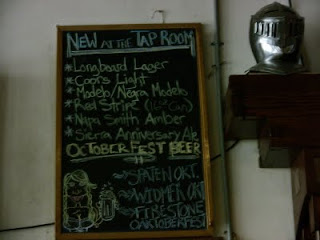 NEW AT THE TAP ROOM
*Longboard Lager
*Coors Light
*Modelo/Negra Modelo
*Red Stripe (16oz Can)
*Napa Smith Amber
*Sierra Anniversary Ale
OCTOBERFEST BEER
SPATEN OKT.
WIDMER OKT
FIRESTONE
OAKTOBERFEST